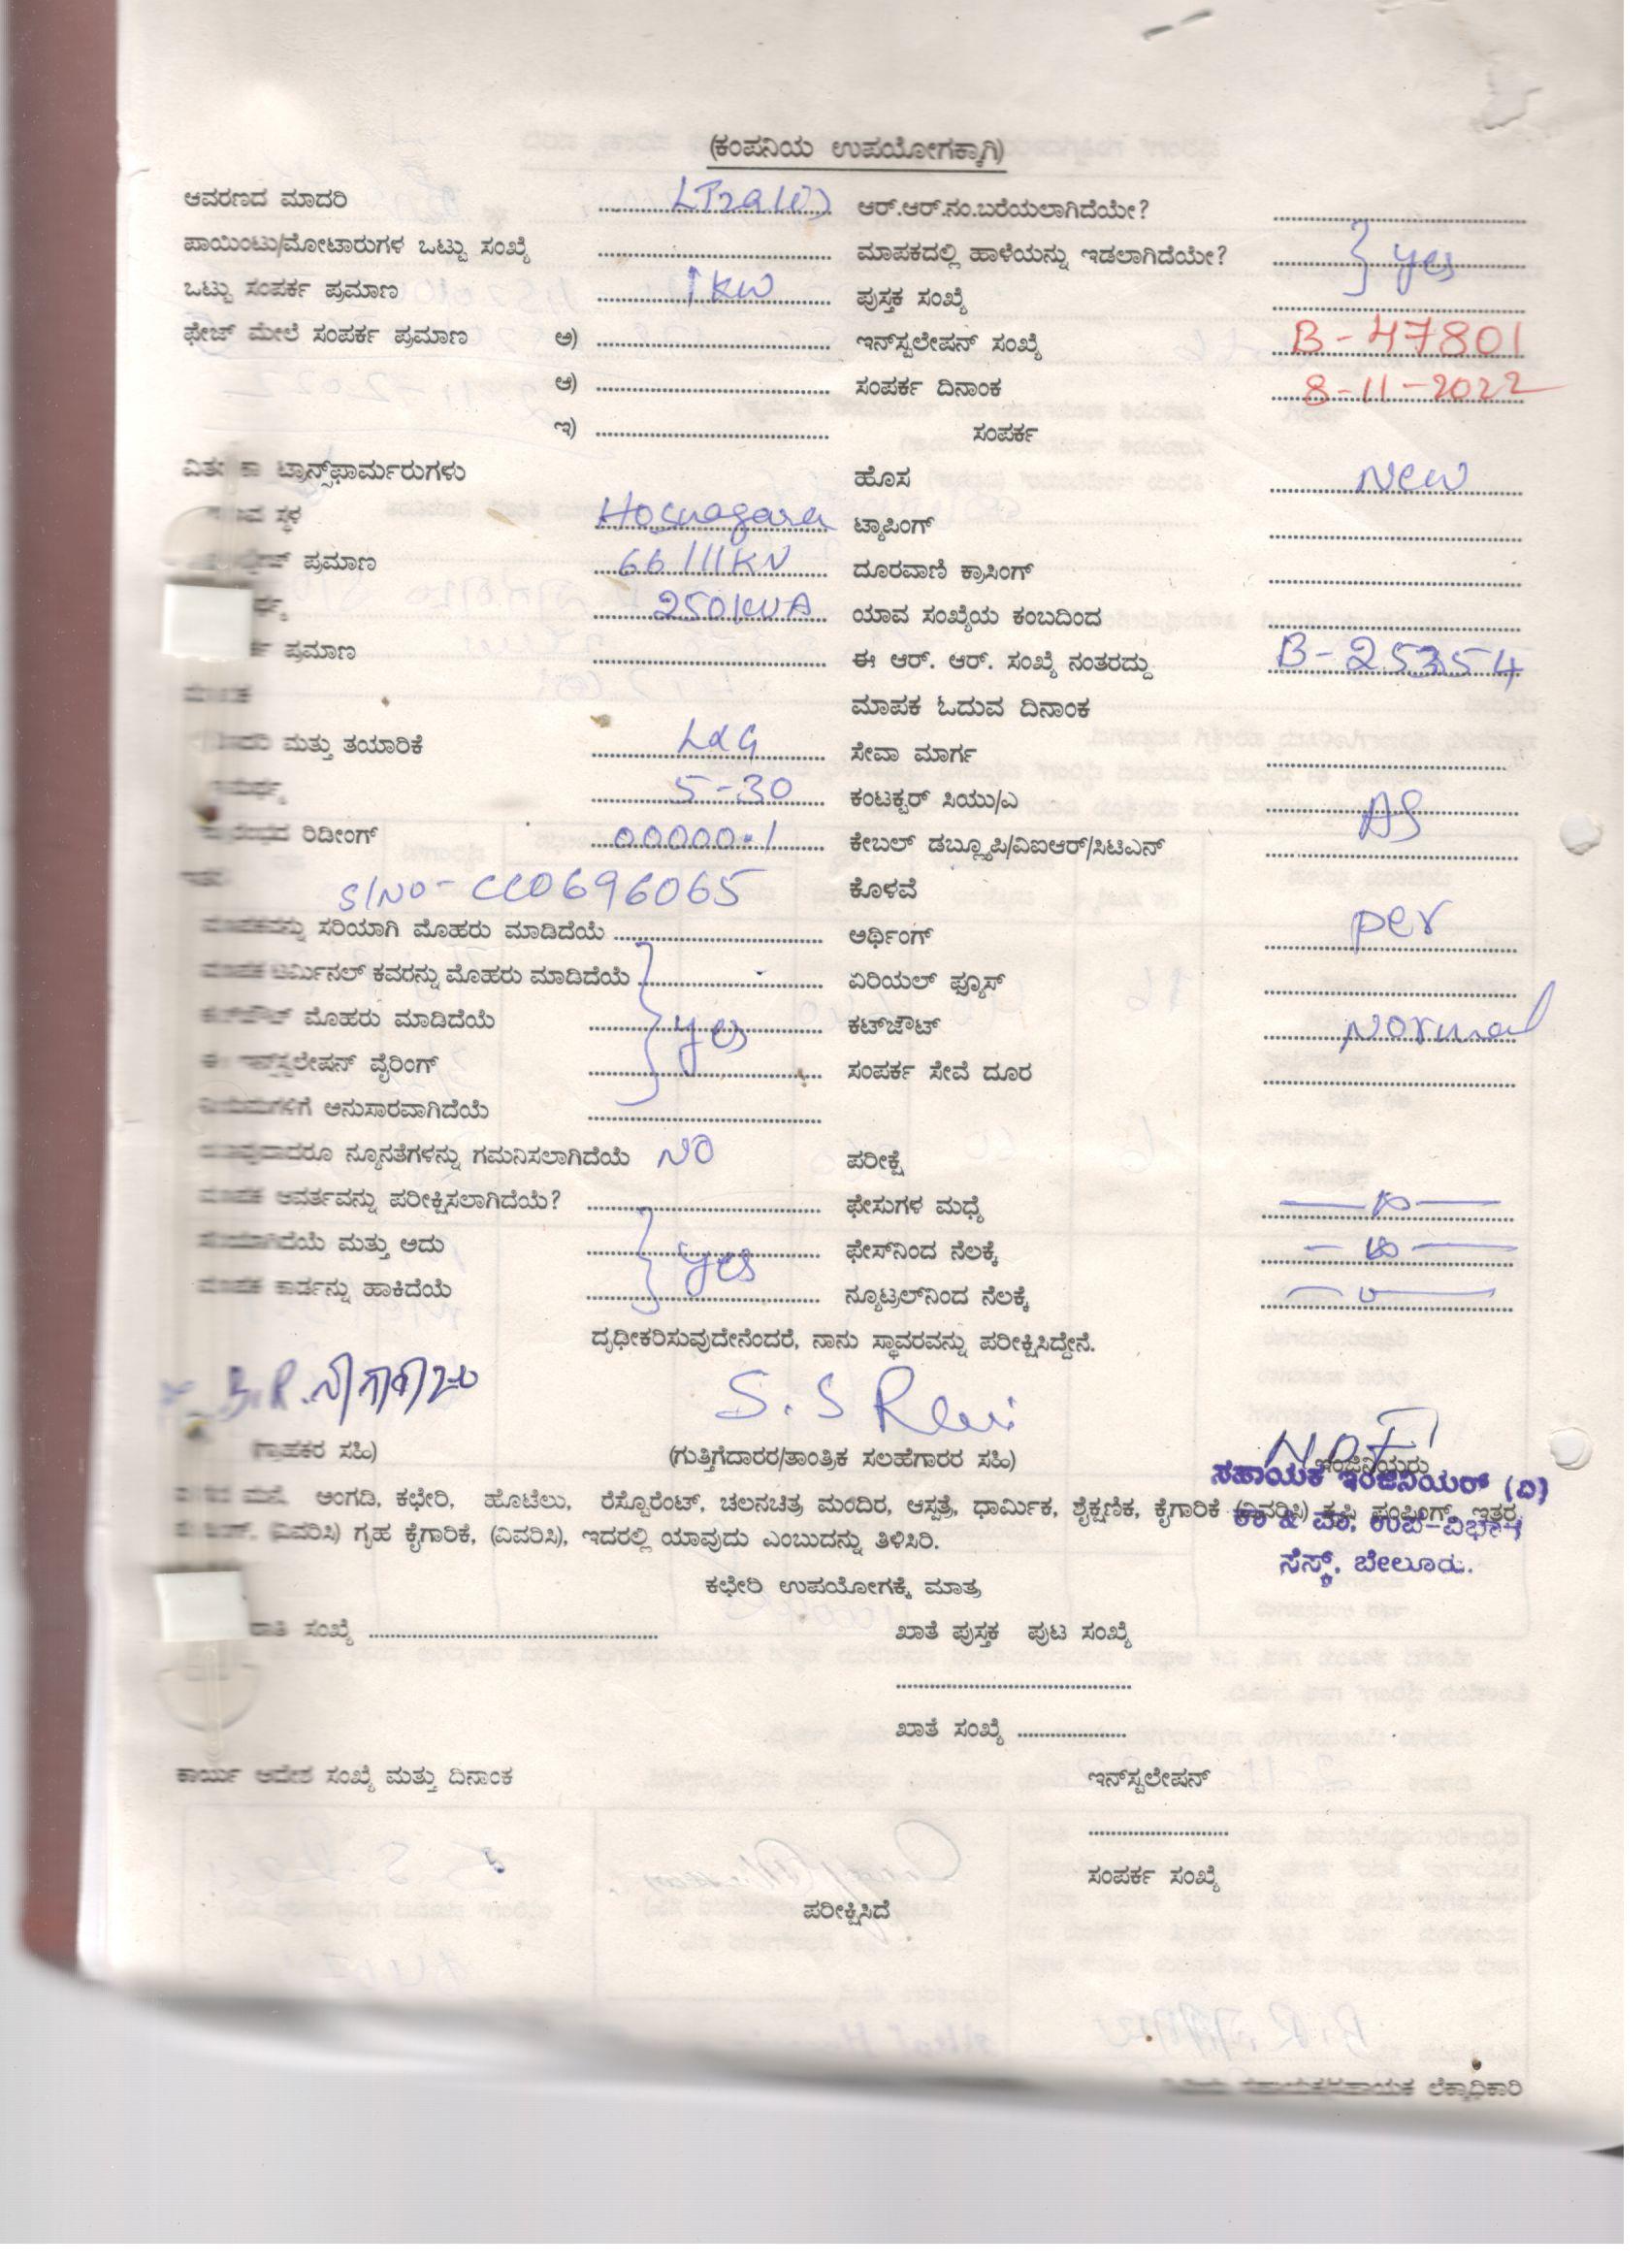 (ಕಂಪನಿಯ ಉಪಯೋಗಕ್ಕಾಗಿ)
ಆವರಣದ ಮಾದರಿ ಆರ್.ಆರ್.ನಂ.ಬರೆಯಲಾಗಿದೆಯೇ?
ಪಾಯಿಂಟು/ಮೋಟಾರುಗಳ ಒಟ್ಟು ಸಂಖ್ಯೆ ಮಾಪಕದಲ್ಲಿ ಹಾಳೆಯನ್ನು ಇಡಲಾಗಿದೆಯೇ? yes
ಒಟ್ಟು ಸಂಪರ್ಕ ಪ್ರಮಾಣ 1 KW ಪುಸ್ತಕ ಸಂಖ್ಯೆ
ಫೇಜ್ ಮೇಲೆ ಸಂಪರ್ಕ ಪ್ರಮಾಣ ಅ) ಇನ್‌ಸ್ಟಲೇಷನ್ ಸಂಖ್ಯೆ B-47801
ಆ) ಸಂಪರ್ಕ ದಿನಾಂಕ 8-11-2022
ಇ) ಸಂಪರ್ಕ
ಟ್ರಾನ್ಸ್‌ಫಾರ್ಮರುಗಳು ಹೊಸ New
ಸ್ಥಳ Hosnagara ಟ್ಯಾಪಿಂಗ್
ಪ್ರಮಾಣ 66/11KV ದೂರವಾಣಿ ಕ್ರಾಸಿಂಗ್
250KVA ಯಾವ ಸಂಖ್ಯೆಯ ಕಂಬದಿಂದ
ಪ್ರಮಾಣ ಈ ಆರ್. ಆರ್. ಸಂಖ್ಯೆ ನಂತರದ್ದು B-25354
ಮಾಪಕ ಓದುವ ದಿನಾಂಕ
ಮತ್ತು ತಯಾರಿಕೆ L&G ಸೇವಾ ಮಾರ್ಗ
5-30 ಕಂಟಕ್ಟರ್ ಸಿಯು/ಎ AS
ರಿಡೀಂಗ್ 00000.1 ಕೇಬಲ್ ಡಬ್ಲ್ಯೂಪಿ/ವಿಐಆರ್/ಸಿಟಿಎನ್
S/NO- CC0696065 ಕೊಳವೆ
ಮಾಪಕವನ್ನು ಸರಿಯಾಗಿ ಮೊಹರು ಮಾಡಿದೆಯೆ ಅರ್ಥಿಂಗ್ per
ಮಾಪಕ ಟರ್ಮಿನಲ್ ಕವರನ್ನು ಮೊಹರು ಮಾಡಿದೆಯೆ ಏರಿಯಲ್ ಫ್ಯೂಸ್
ಕಟ್‌ಔಟ್ ಮೊಹರು ಮಾಡಿದೆಯೆ yes ಕಟ್‌ಔಟ್ Normal
ಈ ಇನ್‌ಸ್ಟಲೇಷನ್ ವೈರಿಂಗ್ ಸಂಪರ್ಕ ಸೇವೆ ದೂರ
ನಿಯಮಗಳಿಗೆ ಅನುಸಾರವಾಗಿದೆಯೆ
ಯಾವುದಾದರೂ ನ್ಯೂನತೆಗಳನ್ನು ಗಮನಿಸಲಾಗಿದೆಯೆ NO ಪರೀಕ್ಷೆ
ಮಾಪಕ ಆವರ್ತವನ್ನು ಪರೀಕ್ಷಿಸಲಾಗಿದೆಯೆ? ಫೇಸುಗಳ ಮಧ್ಯೆ
ಸರಿಯಾಗಿದೆಯೆ ಮತ್ತು ಅದು yes ಫೇಸ್‌ನಿಂದ ನೆಲಕ್ಕೆ
ಮಾಪಕ ಕಾರ್ಡನ್ನು ಹಾಕಿದೆಯೆ ನ್ಯೂಟ್ರಲ್‌ನಿಂದ ನೆಲಕ್ಕೆ
ದೃಢೀಕರಿಸುವುದೇನೆಂದರೆ, ನಾನು ಸ್ಥಾವರವನ್ನು ಪರೀಕ್ಷಿಸಿದ್ದೇನೆ.
B.R. ನಾಗರಾಜು S. S Ravi
(ಗ್ರಾಹಕರ ಸಹಿ) (ಗುತ್ತಿಗೆದಾರರ/ತಾಂತ್ರಿಕ ಸಲಹೆಗಾರರ ಸಹಿ) ಇಂಜಿನಿಯರು
ಸಹಾಯಕ ಇಂಜಿನಿಯರ್ (ವಿ)
ಮನೆ, ಅಂಗಡಿ, ಕಛೇರಿ, ಹೊಟೆಲು, ರೆಸ್ಟೊರೆಂಟ್, ಚಲನಚಿತ್ರ ಮಂದಿರ, ಆಸ್ಪತ್ರೆ, ಧಾರ್ಮಿಕ, ಶೈಕ್ಷಣಿಕ, ಕೈಗಾರಿಕೆ (ವಿವರಿಸಿ) ಕೃಷಿ ಪಂಪಿಂಗ್, ಇತರ
ಕಾ & ಪಾ, ಉಪ-ವಿಭಾಗ
(ವಿವರಿಸಿ) ಗೃಹ ಕೈಗಾರಿಕೆ, (ವಿವರಿಸಿ), ಇದರಲ್ಲಿ ಯಾವುದು ಎಂಬುದನ್ನು ತಿಳಿಸಿರಿ.
ಸೆಸ್ಕ್, ಬೇಲೂರು.
ಕಛೇರಿ ಉಪಯೋಗಕ್ಕೆ ಮಾತ್ರ
ಸಂಖ್ಯೆ ಖಾತೆ ಪುಸ್ತಕ ಪುಟ ಸಂಖ್ಯೆ
ಖಾತೆ ಸಂಖ್ಯೆ
ಕಾರ್ಯ ಆದೇಶ ಸಂಖ್ಯೆ ಮತ್ತು ದಿನಾಂಕ ಇನ್‌ಸ್ಟಲೇಷನ್
ಸಂಪರ್ಕ ಸಂಖ್ಯೆ
ಪರೀಕ್ಷಿಸಿದೆ
ಲೆಕ್ಕಾಧಿಕಾರಿ